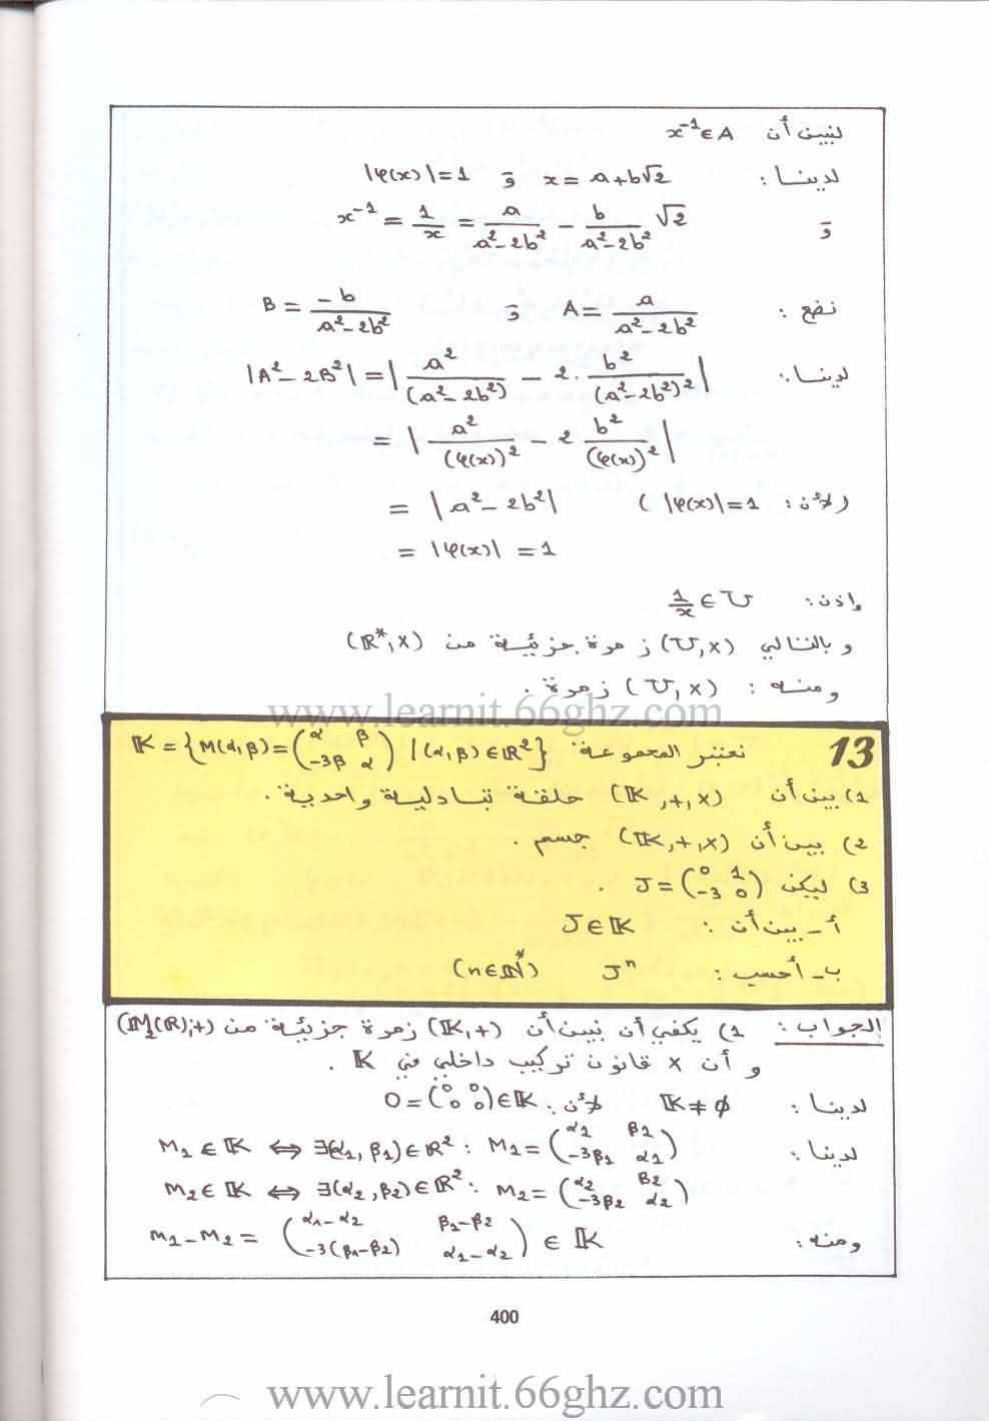 لنبين أن x⁻¹ ∈ A
لدينا : x = a+b√2 و |φ(x)| = 1
و x⁻¹ = 1/x = a/(a²-2b²) - b/(a²-2b²) √2
نضع : A = a/(a²-2b²) و B = -b/(a²-2b²)
لدينا : |A²-2B²| = | a²/(a²-2b²) - 2. b²/(a²-2b²)² |
= | a²/(φ(x))² - 2 b²/(φ(x))² |
= |a²-2b²| (لأن : |φ(x)| = 1)
= |φ(x)| = 1
وإذن : 1/x ∈ U
و بالتالي (U,×) زمرة جزئية من (ℝ*,×)
ومنه : (U,×) زمرة .
www.learnit.66ghz.com
13 نعتبر المجموعة 𝕂 = {M(α,β) = (α β ; -3β α) / (α,β) ∈ ℝ²}
1) بين أن (𝕂,+,×) حلقة تبادلية واحدية .
2) بين أن (𝕂,+,×) جسم .
3) ليكن J = (0 1 ; -3 0) .
أ - بين أن : J ∈ 𝕂
ب - أحسب : Jⁿ (n ∈ ℕ*)
الجواب : 1) يكفي أن نبين أن (𝕂,+) زمرة جزئية من (M₂(ℝ),+)
و أن × قانون تركيب داخلي في 𝕂 .
لدينا : 𝕂 ≠ ∅ لأن : O = (0 0 ; 0 0) ∈ 𝕂
لدينا : M₁ ∈ 𝕂 ⇔ ∃(α₁,β₁) ∈ ℝ² : M₁ = (α₁ β₁ ; -3β₁ α₁)
M₂ ∈ 𝕂 ⇔ ∃(α₂,β₂) ∈ ℝ² : M₂ = (α₂ β₂ ; -3β₂ α₂)
ومنه : M₁-M₂ = (α₁-α₂ β₁-β₂ ; -3(β₁-β₂) α₁-α₂) ∈ 𝕂
400
www.learnit.66ghz.com